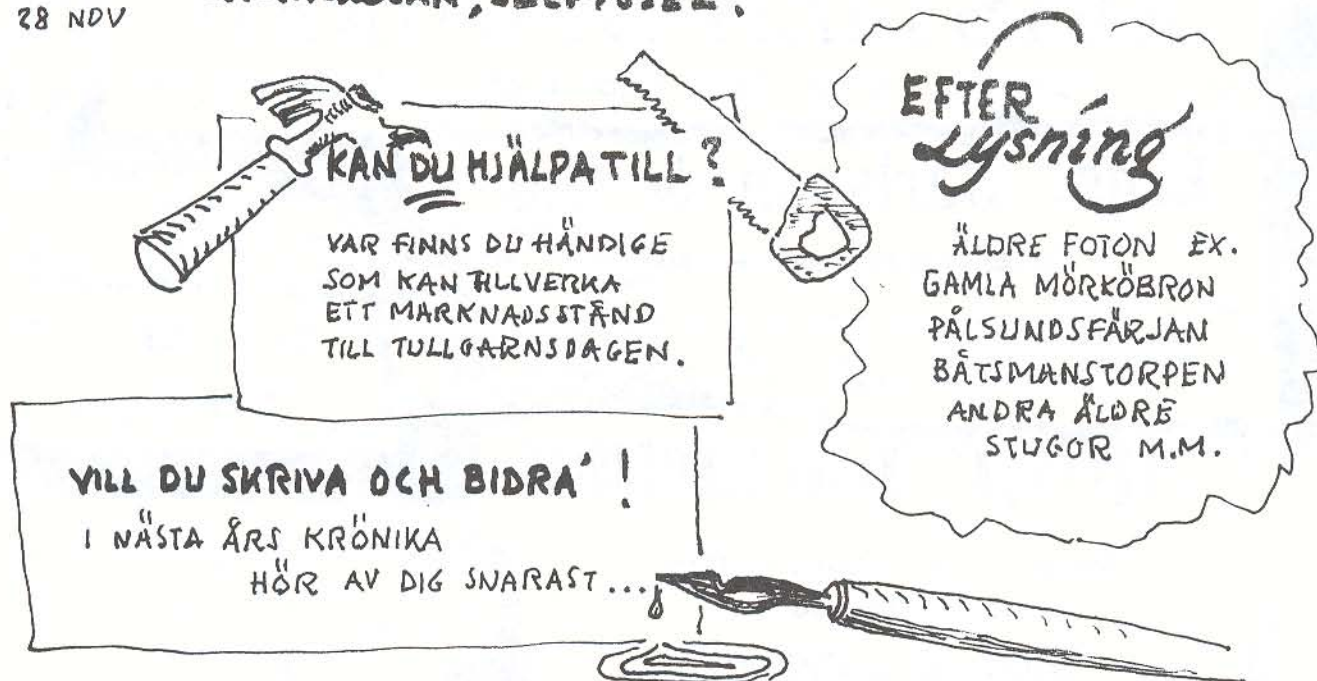 28 NOV
KAN DU HJÄLPA TILL ?
VAR FINNS DU HÄNDIGE
SOM KAN TILLVERKA
ETT MARKNADSSTÅND
TILL TULLGARNSDAGEN.
EFTER
Lysning
ÄLDRE FOTON EX.
GAMLA MÖRKÖBRON
PÅLSUNDSFÄRJAN
BÅTSMANSTORPEN
ANDRA ÄLDRE
STUGOR M.M.
VILL DU SKRIVA OCH BIDRA' !
I NÄSTA ÅRS KRÖNIKA
HÖR AV DIG SNARAST...